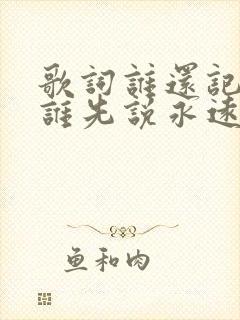 歌詞誰還記
誰先説永遠
鱼和肉